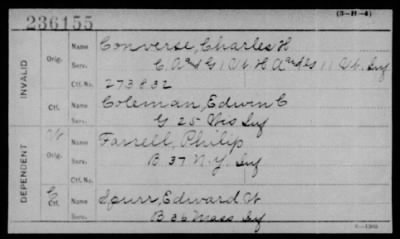 (3-11-4)
236155
INVALID
Orig. Name Converse, Charles H
Serv. C. and G 1 Vt H A and G 11 Vt. Inf
Ctf. No. 273832
Ctf. Name Coleman, Edwin C
Serv. G 25 Wis Inf
DEPENDENT
W Orig. Name Farrell, Philip
Serv. B. 37 N.Y. Inf
Ctf. No.
Ctf. Name Spurr, Edward W
Serv. B 36 Mass Inf